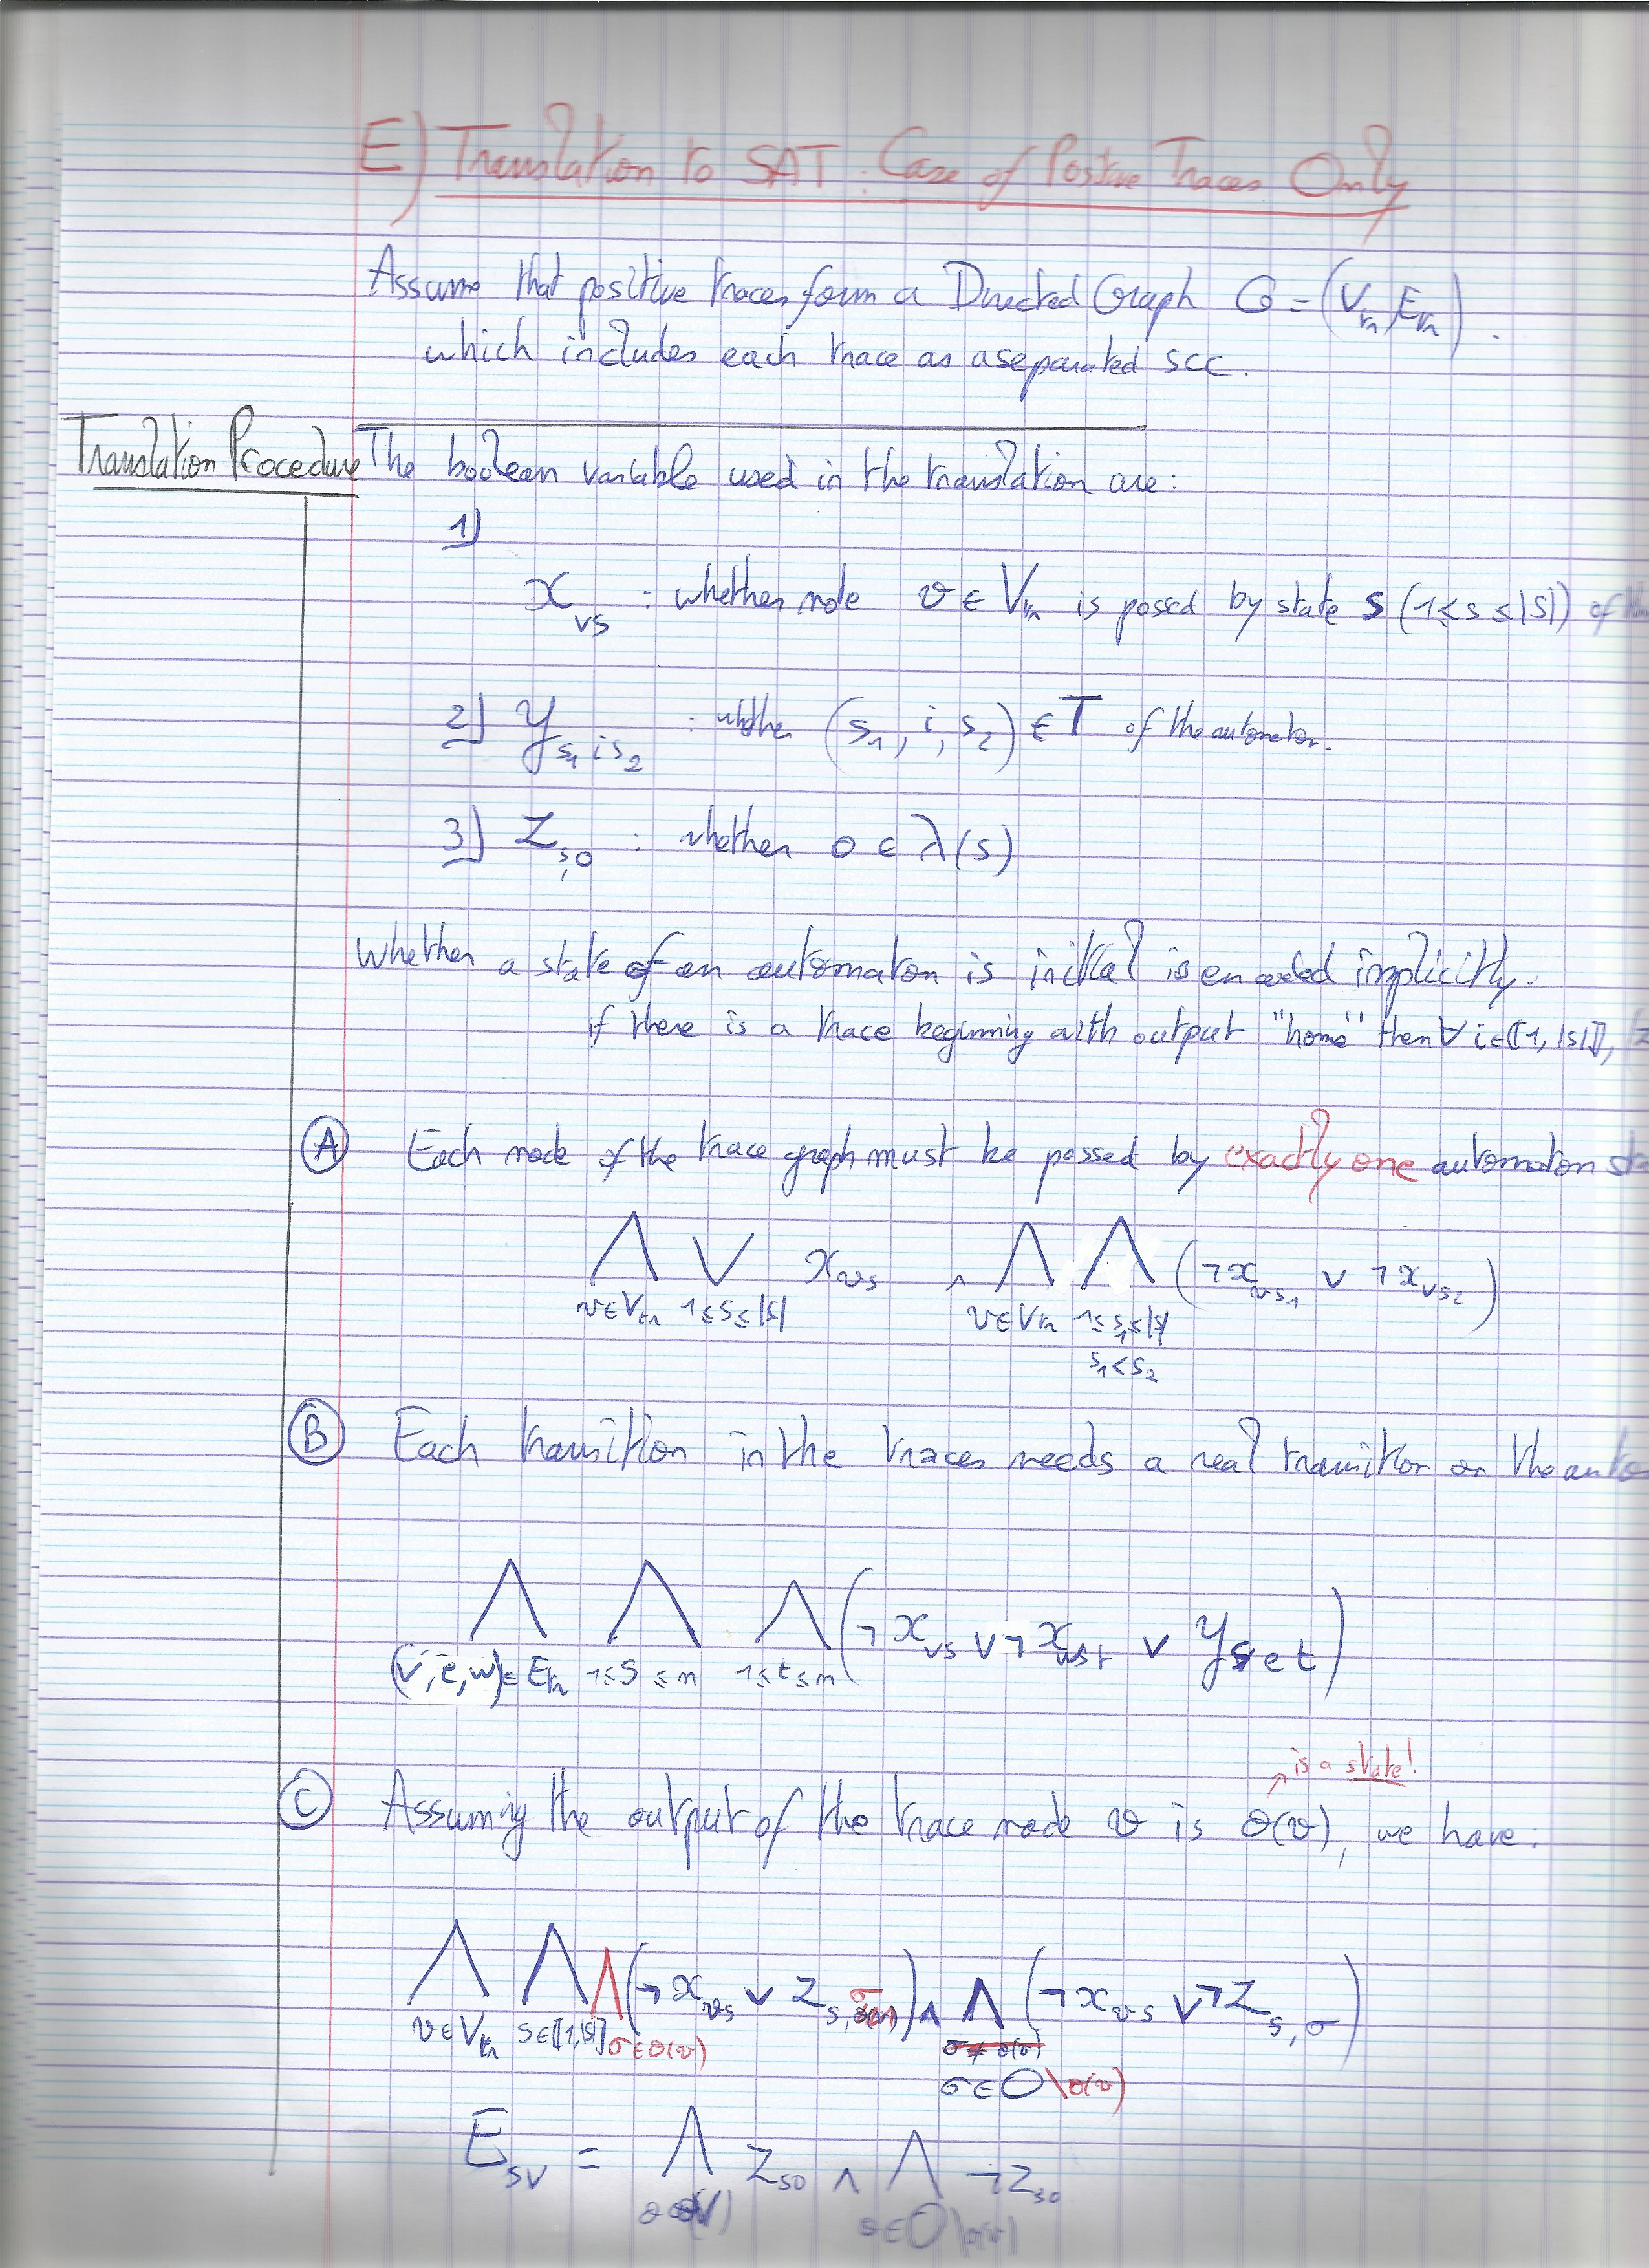 E) Translation to SAT : Case of Positive Traces Only
Assume that positive traces form a Directed Graph G = (V_tr, E_tr).
which includes each trace as a separated scc.
Translation Procedure
The boolean variable used in the translation are:
1)
x_vs : whether node v ∈ V_tr is passed by state s (1 ≤ s ≤ |S|) of
2) y_{s_1 i s_2} : whether (s_1, i, s_2) ∈ T of the automaton.
3) z_{s,o} : whether o ∈ λ(s)
Whether a state of an automaton is initial is encoded implicitly.
if there is a trace beginning with output "home" then ∀ i ∈ [[1, |S|]],
A Each node of the trace graph must be passed by exactly one automaton
⋀_{v∈V_tr} ⋁_{1≤s≤|S|} x_vs ∧ ⋀_{v∈V_tr} ⋀_{1≤s_1≤|S| s_1<s_2} (¬x_{vs_1} ∨ ¬x_{vs_2})
B Each transition in the traces needs a real transition on the
⋀_{(v,e,w)∈E_tr} ⋀_{1≤s≤n} ⋀_{1≤t≤n} (¬x_vs ∨ ¬x_wt ∨ y_set)
is a state!
C Assuming the output of the trace node v is θ(v), we have:
⋀_{v∈V_tr} ⋀_{s∈[[1,|S|]]} ⋀_{σ∈θ(v)} (¬x_vs ∨ z_{s,σ}) ∧ ⋀_{σ∈O\θ(v)} (¬x_vs ∨ ¬z_{s,σ})
E_sv = ⋀ z_so ∧ ⋀_{o∈O\θ(v)} ¬z_so